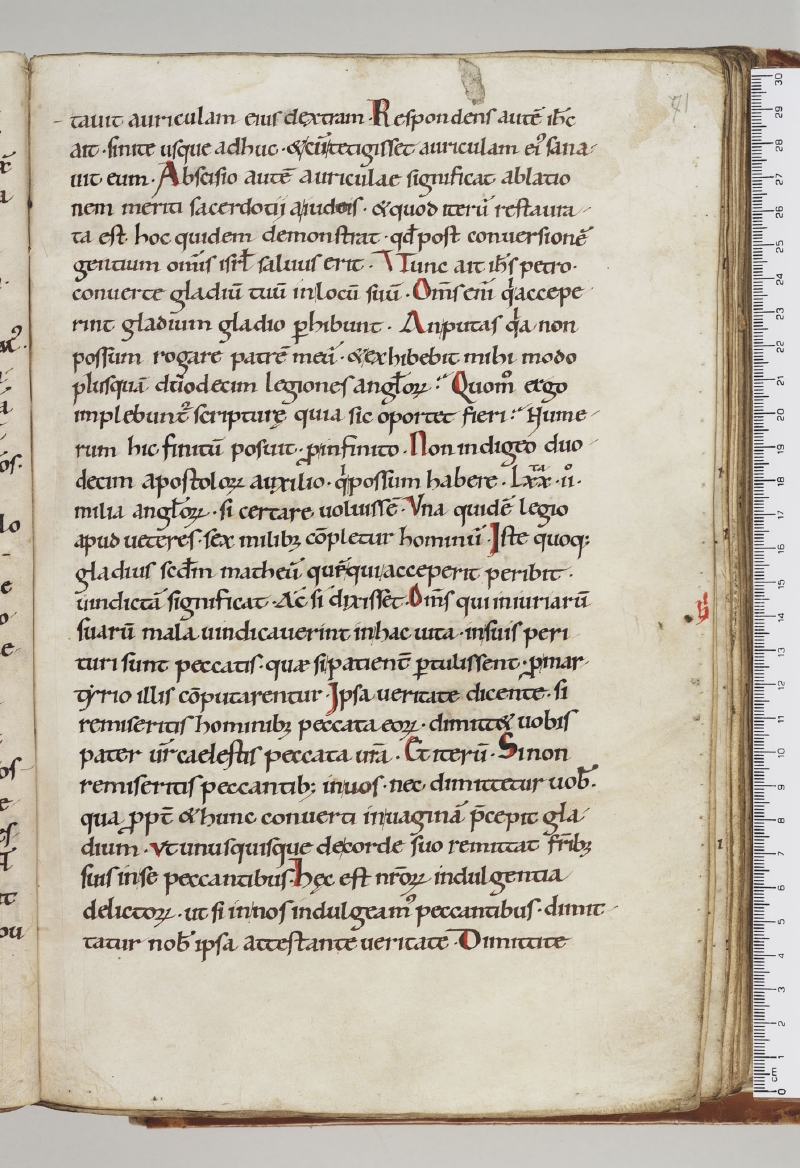 71
tauit auriculam eius dextram · Respondens autē ihc̄
ait · sinite usque adhuc · & cū tetigisset auriculam ei᷒ sana-
uit eum · Abscisio autē auriculae significat ablatio
nem meriti sacerdotij a iudeis · & quod iterū restaura-
ta est hoc quidem demonstrat · qđ post conuersionē
gentium om̄is isrł saluus erit · Tunc ait ih̄s petro ·
conuerte gladiū tuū in locū suū · Om̄s eni qͥ accepe-
rint gladium gladio ꝑhibunt · An putas qͥa non
possum rogare patrē meū · & exhibebit mihi modo
plusquā duodecim legiones angłoꝝ · Quom̊ ergo
implebunt᷒ scripturę quia sic oportet fieri · Nume-
rum hic finitū posuit · ꝓ infinito · Non indigeo duo-
decim apostoloꝝ auxilio · qͥ possum habere · Lxx̄ᵗᵃ · ii̊ ·
milia angłoꝝ · si certare uoluissē · Vna quidē legio
apud ueteres · sex milibꝫ cōpletur hominū · Iste quoqꝫ
gladius scđm matheū quē qui acceperit peribit ·
uindictā significat · Ac si dixisset · Om̄s qui iniuriarū
suarū mala uindicauerint in hac uita · in suis peri
turi sunt peccatis · quæ si patient̄ ꝑtulissent · ꝓ mar-
tyrio illis cōputarentur · Ipsa ueritate dicente · si
remiseritis hominibꝫ peccata eoꝝ · dimitt& uobis
pater ur̄ caelestis peccata ur̄a · Et iterū · Si non
remiseritis peccantibꝫ in uos · nec dimittetur uob̄ ·
qua ꝓpt̄ & hunc conuerti in uaginā p̄cepit gla-
dium · ut unusquisque de corde suo remittat fr̄ibꝫ
suis in se peccantibus · Hęc est nr̄oꝝ indulgentia
delictoꝝ · ut si in nos indulgeam᷒ peccantibus · dimit-
tatur nob̄ ipsa attestante ueritate · Dimittite